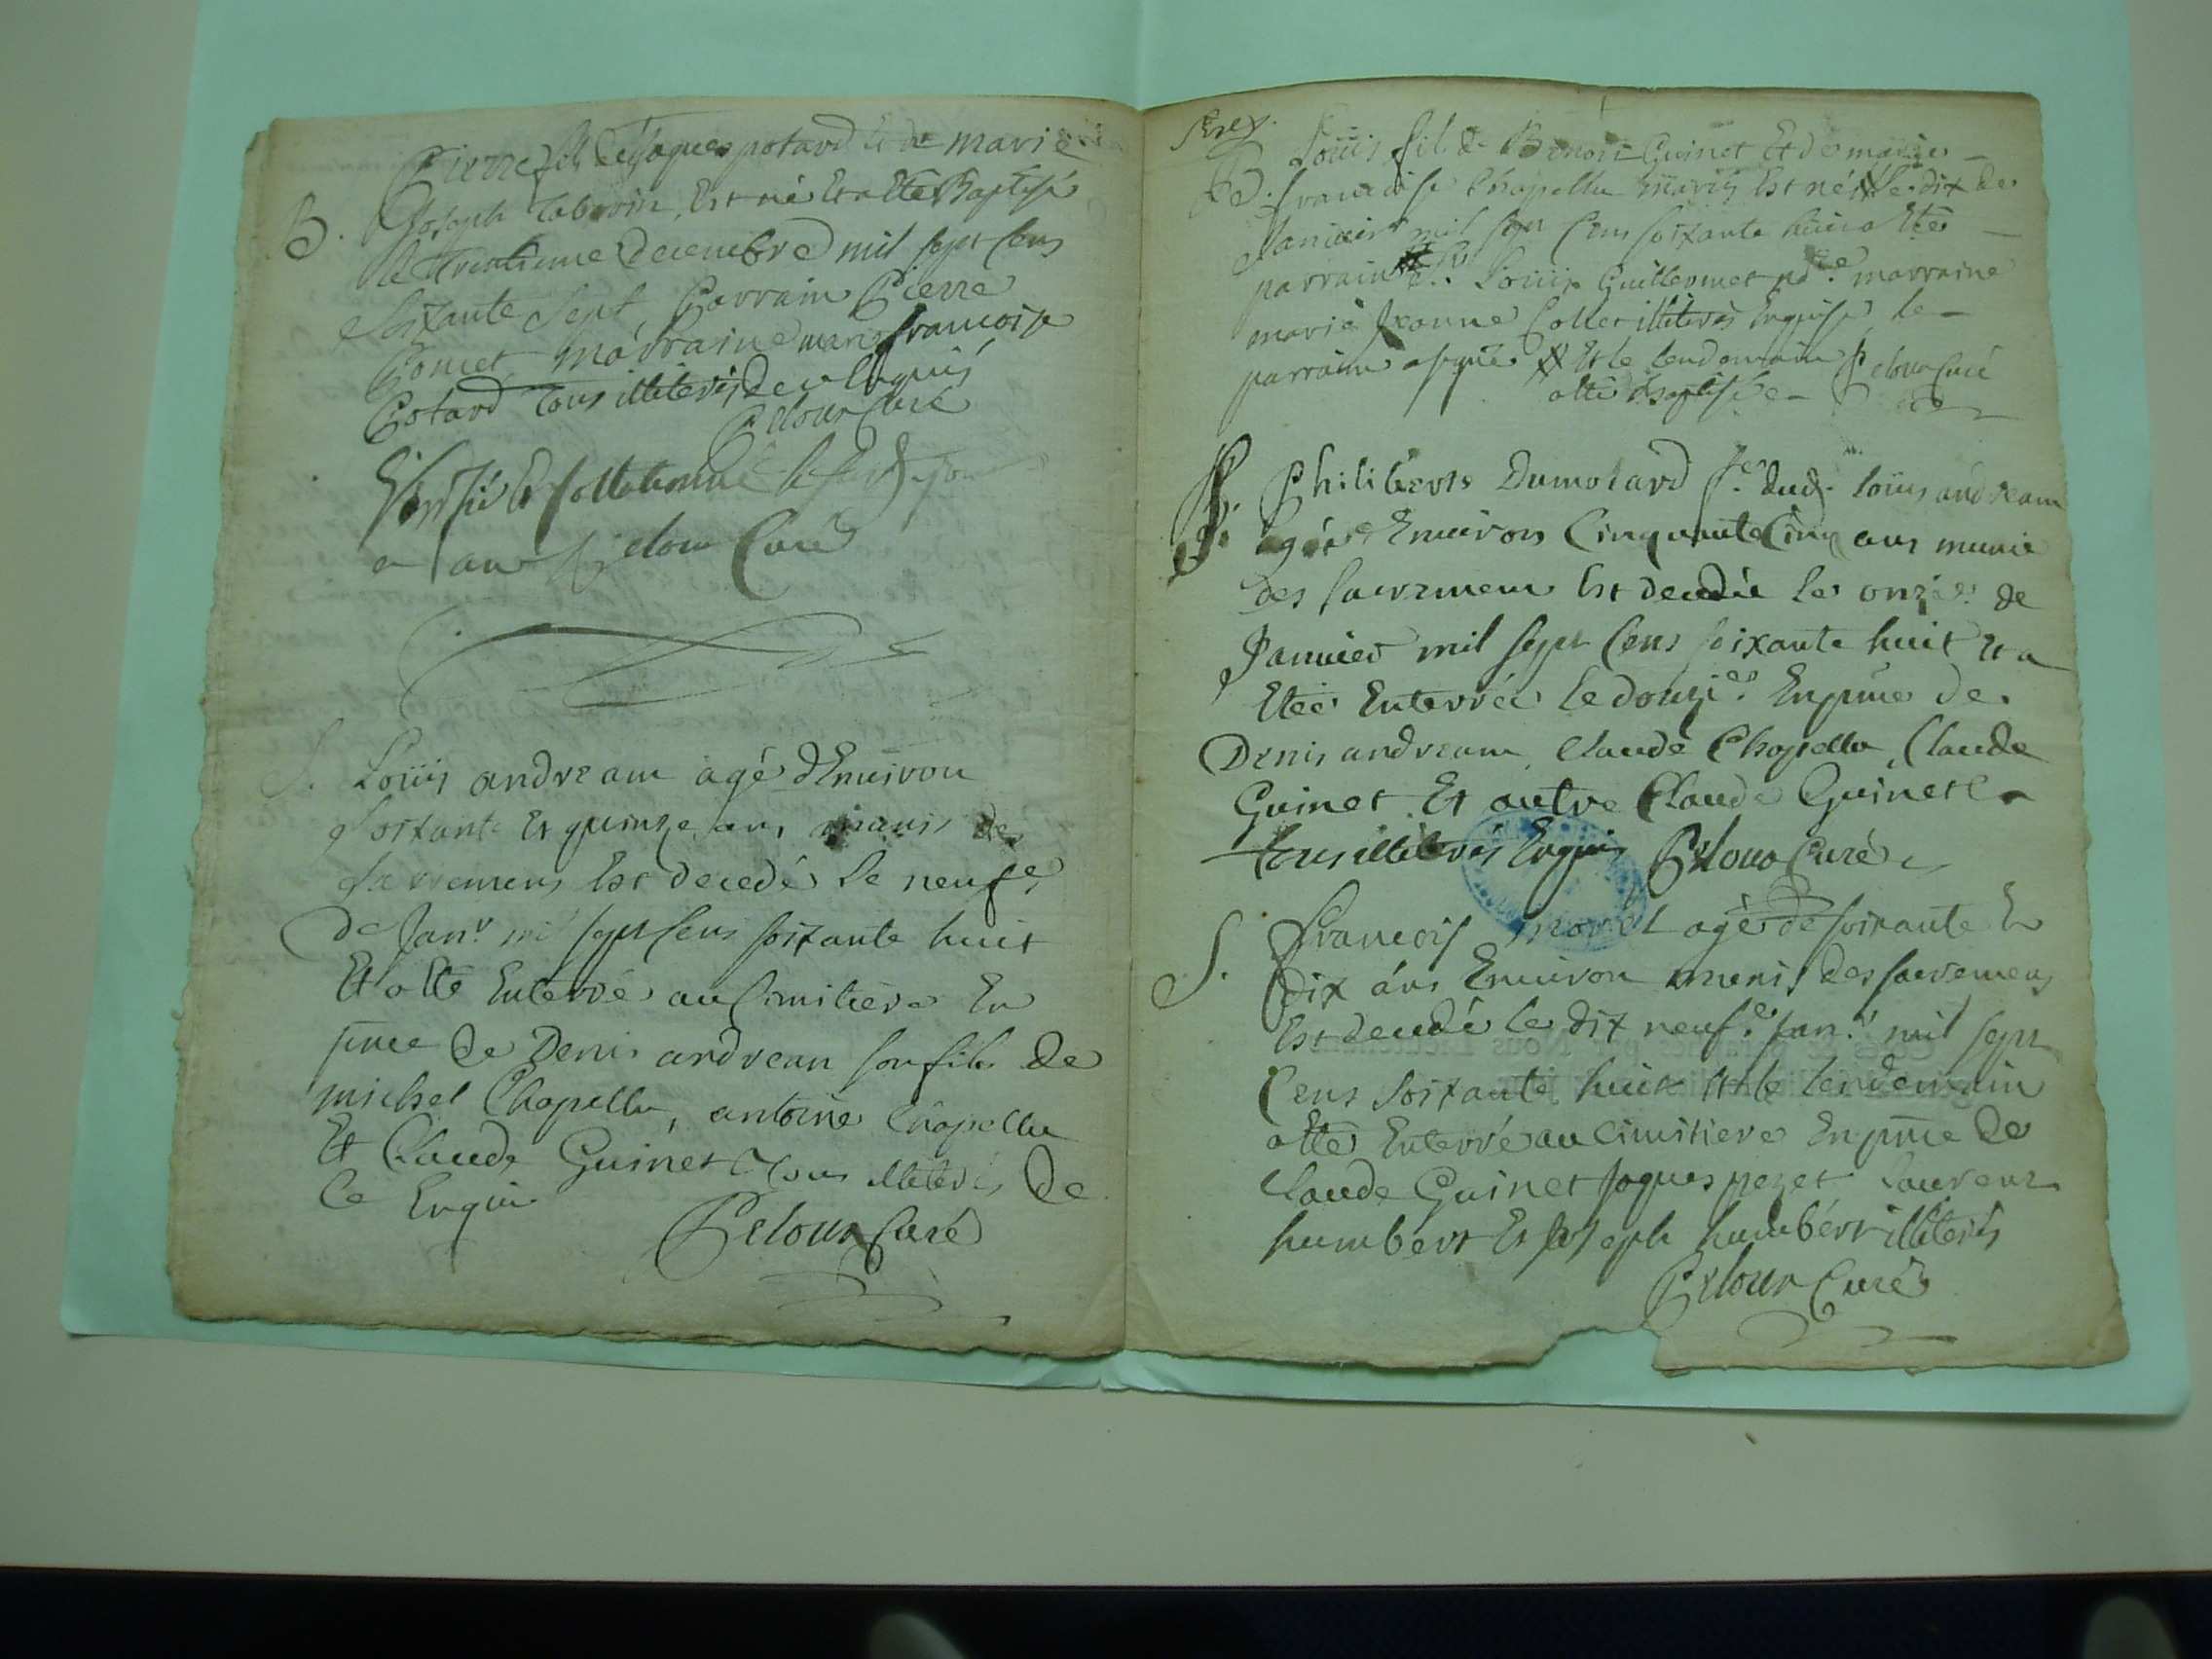 Pierre fils de Jaques potard et de marie
B. Joseph tabovin, Est né Et a Eté Baptisé
le trentieme decembre mil sept cens
soixante sept, Parrain Pierre
Poncet, marraine marie francoise
Potard tous illiterés de ce Enquis
Pelour Curé
Expedié Et Collationné le
Pelour Curé
S. Loüis andream agé d'Environ
soixante Et quinze ans, munis des
sacremens Est decedé le neufe
de Janv. mil sept cens soixante huit
Et a Eté Enterré au Cimitiere En
pnce de Denis andream son fils de
michel Chapellu, antoine Chapellu
Et Claude Guinet tous illiterés De
Ce Enquis
Pelour Curé
B. Loüis fils de Benoit Guinet Et de marie
francoise Chapellu mariés Est né le dix de
Janvier mil sept cens soixante huit a Eté
parrain Sr. Loüis Guillermet marraine
marie Jeanne Collet illiterés Enquise le
parrain a signé Et le lendemain Pelour Curé
a Eté Baptisé
S. Philiberte Dumotard fe. dud. Loüis andream
agée d'Environ Cinquante Cinq ans munie
des sacremens Est decedée le onzie. de
Janvier mil sept cens soixante huit Et a
Eteé Enterrée le douzie. En pnce de
Denis andream, Claude Chapellu, Claude
Guinet Et autre Claude Guinet
tous illiterés Enquis Pelour Curé
S. Francois morel agé de soixante Et
dix ans Environ munis des sacremens
Est decedé le dix neufe. Janv. mil sept
Cens soixante huit Et le lendemain
a Eté Enterré au Cimitiere En pnce de
Claude Guinet Jaques pezet Laurent
humbert Et Joseph humbert illiterés
Pelour Curé